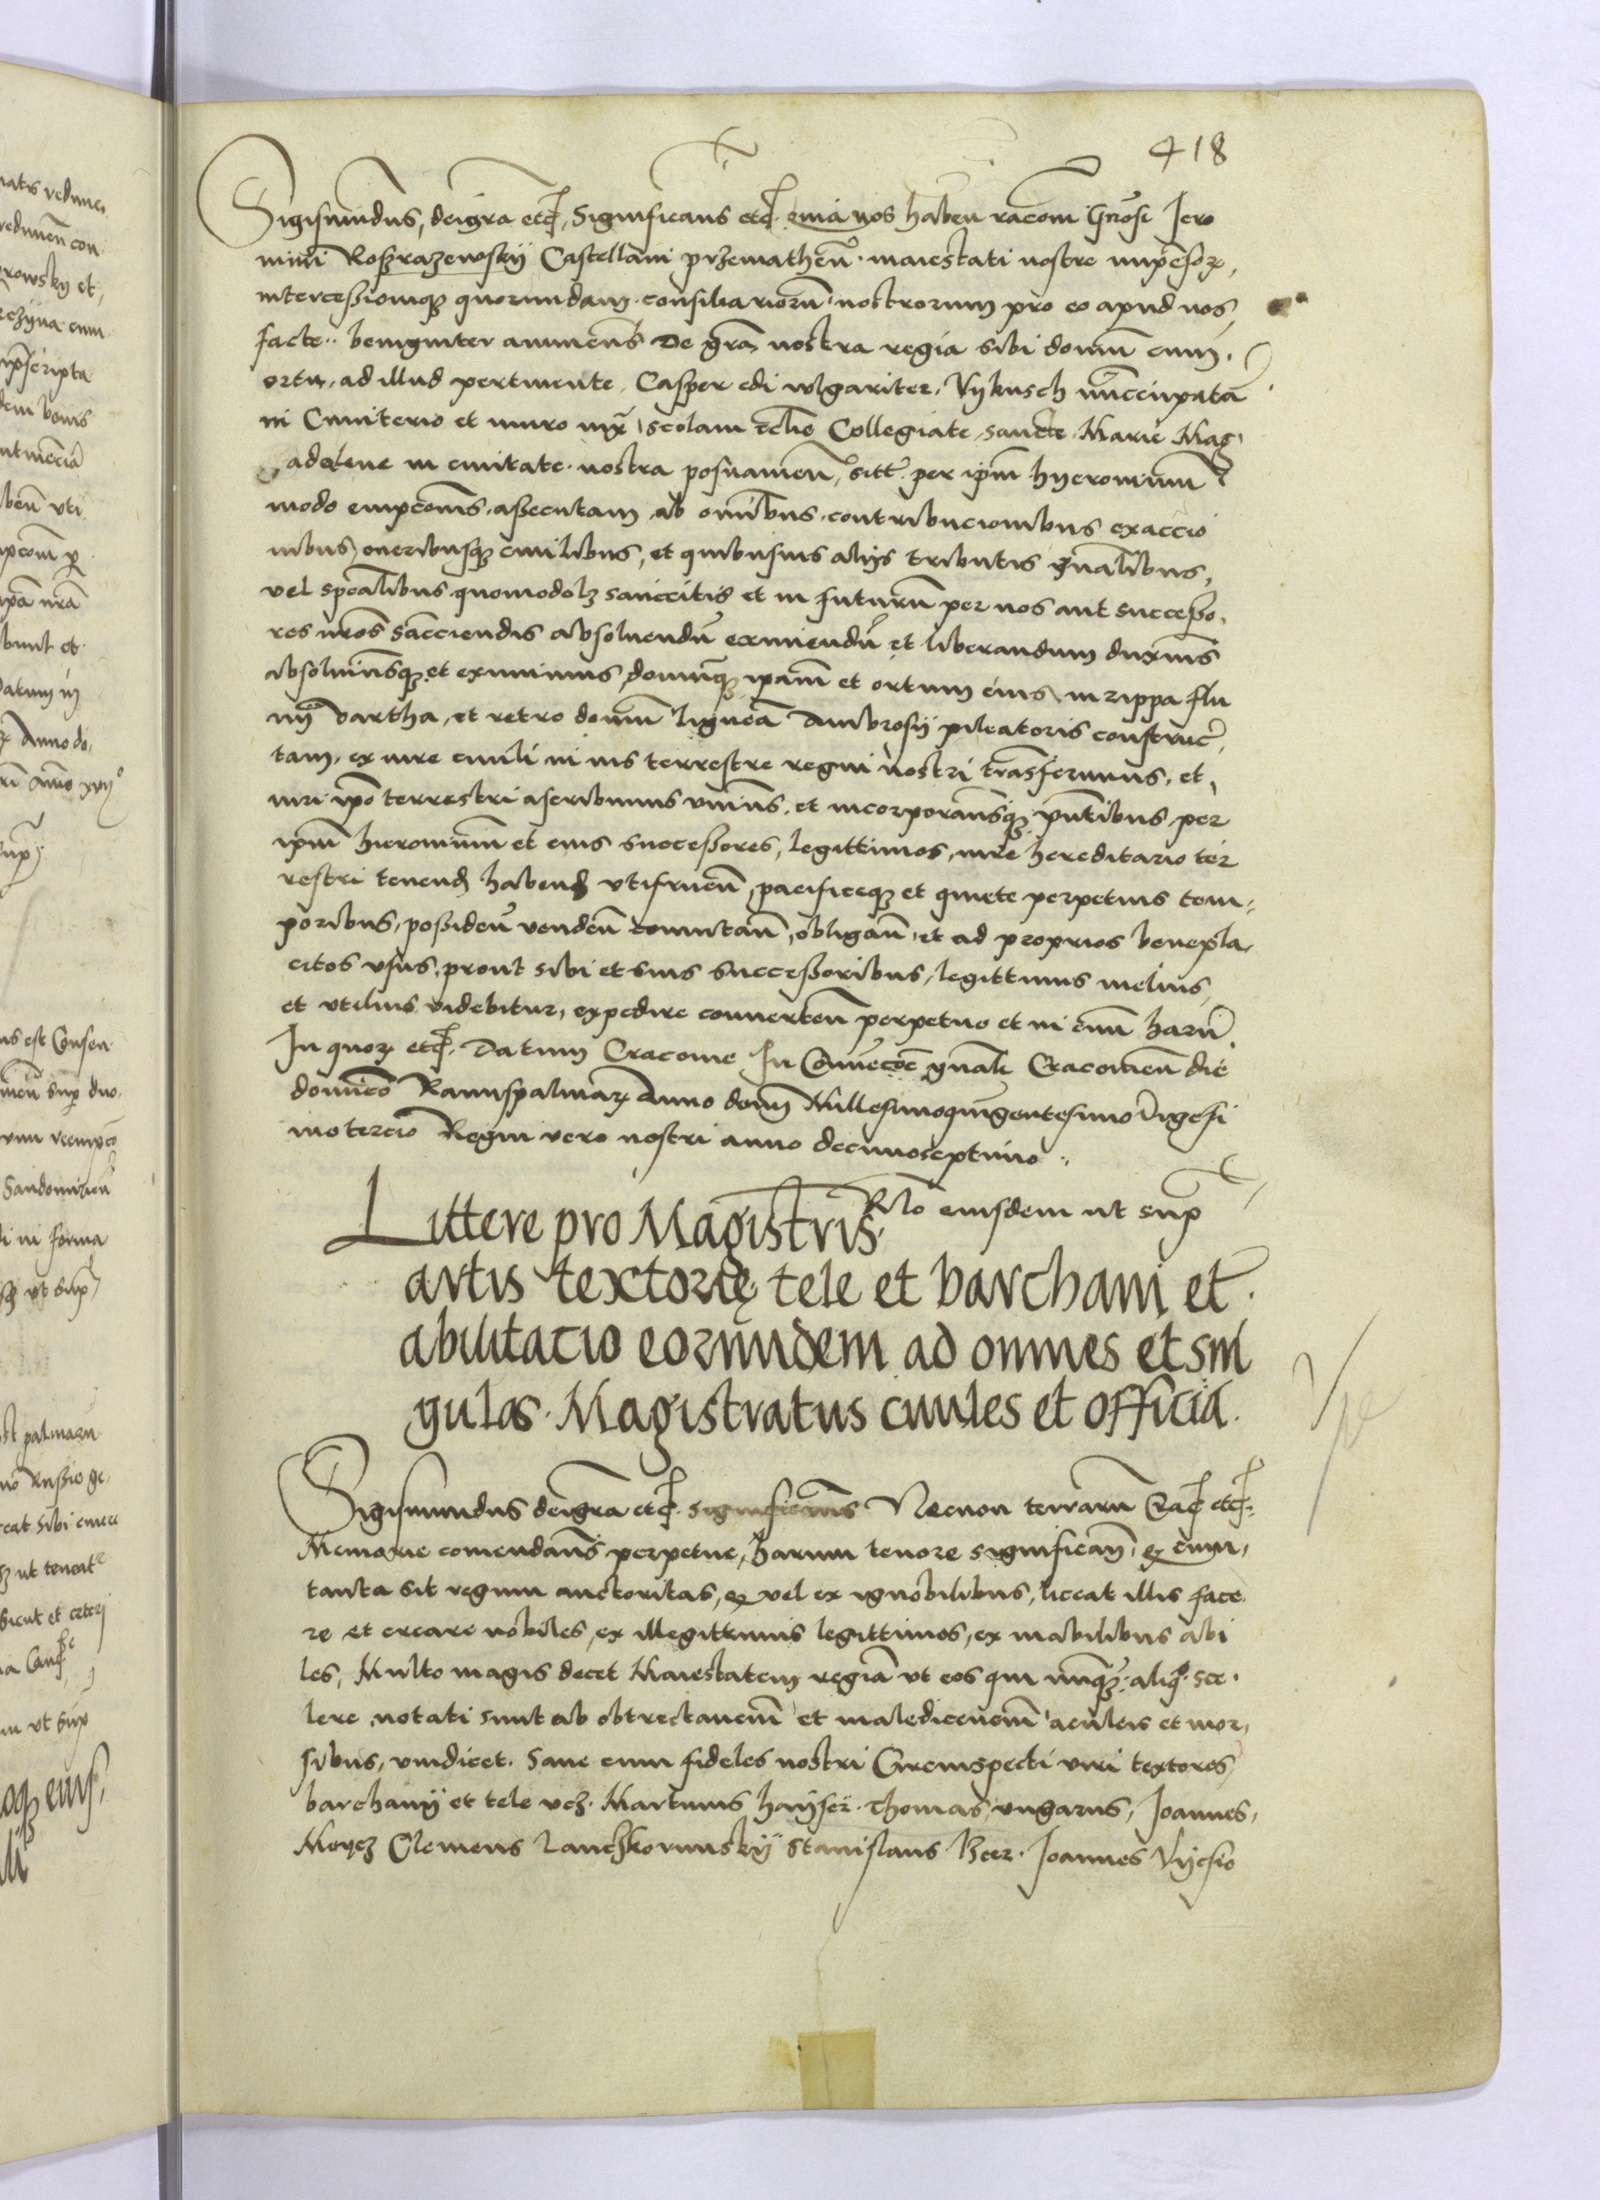 418
Sigismundus, dei gra etc, Significamus etc. quia nos habentes racom Gnosi Jero
nimi Rosrazewskÿ Castellani przemathen. maiestati nostre impensor,
intercessionique quorundam consiliariorum nostrorum pro eo apud nos
facte. benigniter annuens De gra nostra regia sibi domum cum
ortu, ad illud pertinente, Casper edi wlgariter. Vÿkusch nuncupatam
in Cimiterio et muro iux scolam ecclie Collegiate sancte Marie Mag
adalene in ciuitate nostra posnanien sitt per ipm hyeronimum
modo empcionis assecutam ab omnibus contribucionibus exaccio
nibus oneribusque ciuilibus, et quibusuis alÿs tributis gnalibus,
vel spealibus quomodolz sanccitis et in futurum per nos aut successo
res nros sancciendis absoluendum eximiendum et liberandum duximus
absoluimusque et eximimus, domumque ipam et ortum eius in rippa flu
uÿ vartha, et retro domum ligneam Ambrosÿ pileatoris construc
tam, ex iure ciuili in ius terrestre regni nostri transferimus, et
iuri ipo terrestri ascribimus vnimus. et incorporamusque pntibus per
ipm hieronimum et eius successores, legittimos, iure hereditario ter
restri tenend habend vtifruen, pacificeque et quiete perpetuis tem
poribus, possiden venden comutan, obligan, et ad proprios benepla
citos vsus, prout sibi et suis successoribus, legittimis melius
et vtilius videbitur, expedire conuerten perpetuo et in euum harum
In quor etc. Datum Cracouie In Conuecoe gnali Cracouien die
dominico Ramispalmar Anno domi Millesimoquingentesimo Vigesi
motercio Regni vero nostri anno decimoseptimo
Rlo eiusdem ut supra
Littere pro Magistris
artis textorię tele et barchani et
abilitacio eorundem ad omnes et sin
gulos Magistratus ciuiles et officia
Sigismundus dei gra etc. significamus Necnon terrarum Cra etc.
Memorie comendans perpetue, harum tenore significam, q cum
tanta sit regum auctoritas, q vel ex ignobilibus, liceat illis face
re et creare nobiles, ex illegittimis legittimos, ex inabilibus abi
les, Multo magis decet Maiestatem regiam vt eos qui nunquam aliquo sce
lere notati sunt ab obtrectancium et maledicencium aculeis et mor
sibus, vindicet. Sane cum fideles nostri Circumspecti viri textores
barchanÿ et tele vcz. Martinus haÿser. Thomas vngarus, Joannes
Moycz Clemens Lanczkorunskÿ Stanislaus Beer. Joannes Vÿcsio